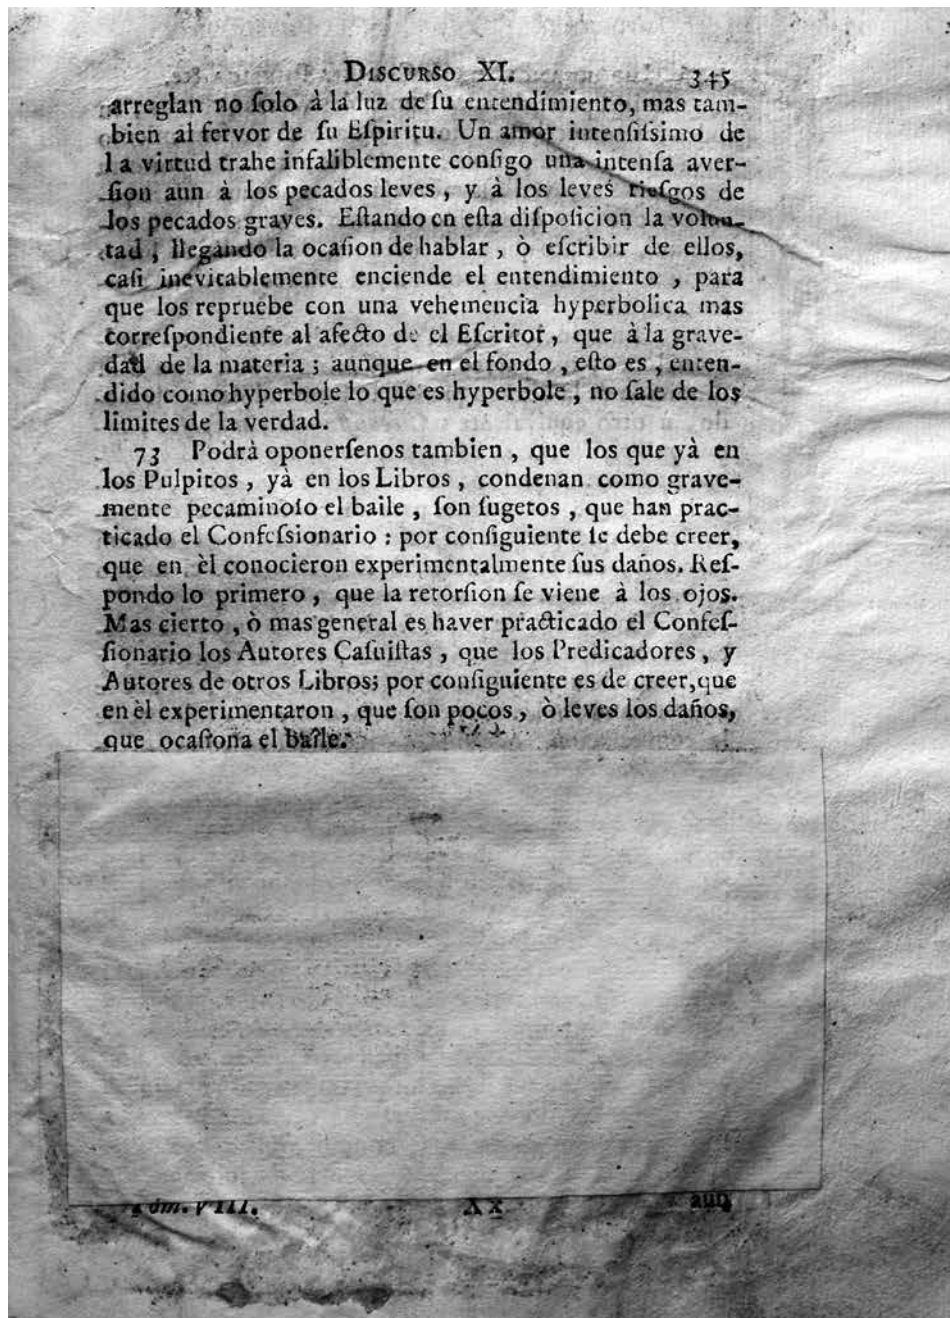 DISCURSO XI. 345
arreglan no ſolo à la luz de ſu entendimiento, mas tam-
bien al fervor de ſu Eſpiritu. Un amor intenſiſsimo de
la virtud trahe infaliblemente conſigo una intenſa aver-
ſion aun à los pecados leves, y à los leves rieſgos de
los pecados graves. Eſtando en eſta diſpoſicion la volun-
tad, llegando la ocaſion de hablar, ò eſcribir de ellos,
caſi inevitablemente enciende el entendimiento, para
que los repruebe con una vehemencia hyperbolica mas
correſpondiente al afecto de el Eſcritor, que à la grave-
dad de la materia; aunque en el fondo, eſto es, enten-
dido como hyperbole lo que es hyperbole, no ſale de los
limites de la verdad.
73 Podrà oponerſenos tambien, que los que yà en
los Pulpitos, yà en los Libros, condenan como grave-
mente pecaminoſo el baile, ſon ſugetos, que han prac-
ticado el Confeſsionario: por conſiguiente ſe debe creer,
que en èl conocieron experimentalmente ſus daños. Reſ-
pondo lo primero, que la retorſion ſe viene à los ojos.
Mas cierto, ò mas general es haver practicado el Confeſ-
ſionario los Autores Caſuiſtas, que los Predicadores, y
Autores de otros Libros; por conſiguiente es de creer, que
en èl experimentaron, que ſon pocos, ò leves los daños,
que ocaſiona el baile.
Tom. VIII. Xx aun